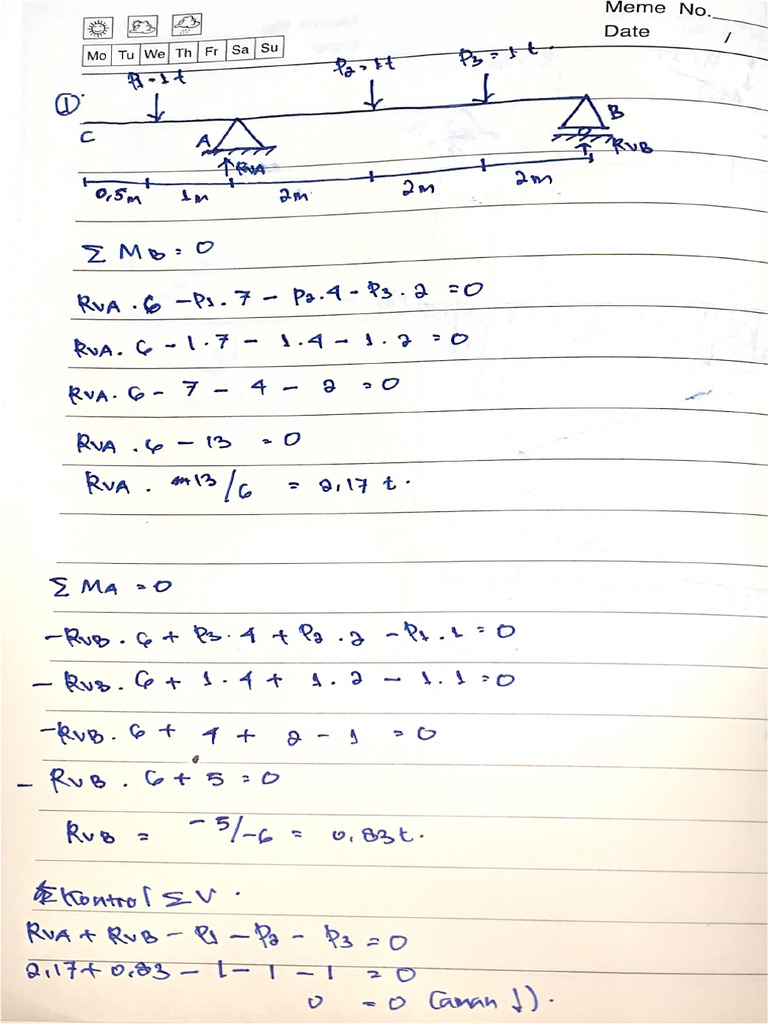 Meme No.
Date /
Mo Tu We Th Fr Sa Su
P1=1t P2=1t P3=1t.
①
C A B
RVA RVB
0,5m 1m 2m 2m 2m
Σ MB = 0
RVA . 6 - P1 . 7 - P2 . 4 - P3 . 2 = 0
RVA . 6 - 1 . 7 - 1 . 4 - 1 . 2 = 0
RVA . 6 - 7 - 4 - 2 = 0
RVA . 6 - 13 = 0
RVA . 13/6 = 2,17 t.
Σ MA = 0
-RVB . 6 + P3 . 4 + P2 . 2 - P1 . 1 = 0
- RVB . 6 + 1 . 4 + 1 . 2 - 1 . 1 = 0
-RVB . 6 + 4 + 2 - 1 = 0
- RVB . 6 + 5 = 0
RVB = -5/-6 = 0,83t.
Kontrol ΣV.
RVA + RVB - P1 - P2 - P3 = 0
2,17 + 0,83 - 1 - 1 - 1 = 0
0 = 0 (aman ↓).